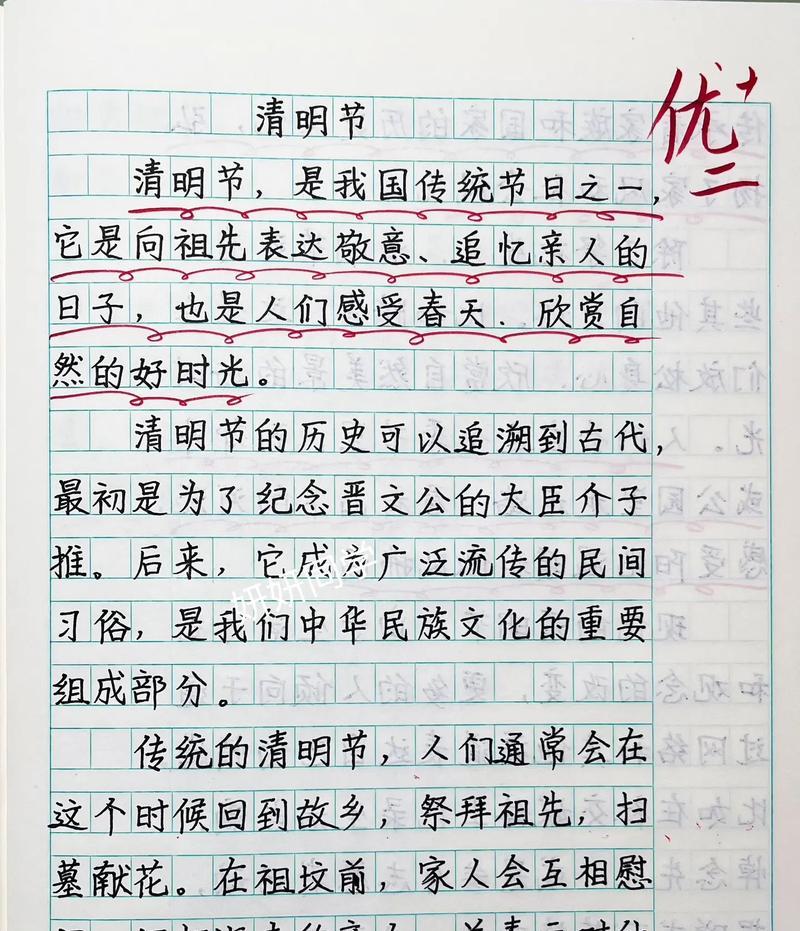 优+
二
清明节
清明节，是我国传统节日之一，
它是向祖先表达敬意、追忆亲人的
日子，也是人们感受春天、欣赏自
然的好时光。
清明节的历史可以追溯到古代，
最初是为了纪念晋文公的大臣介子
推。后来，它成为广泛流传的民间
习俗，是我们中华民族文化的重要
组成部分。
妍妍同学
传统的清明节，人们通常会在
这个时候回到故乡，祭拜祖先，扫
墓献花。在祖坟前，家人会互相慰